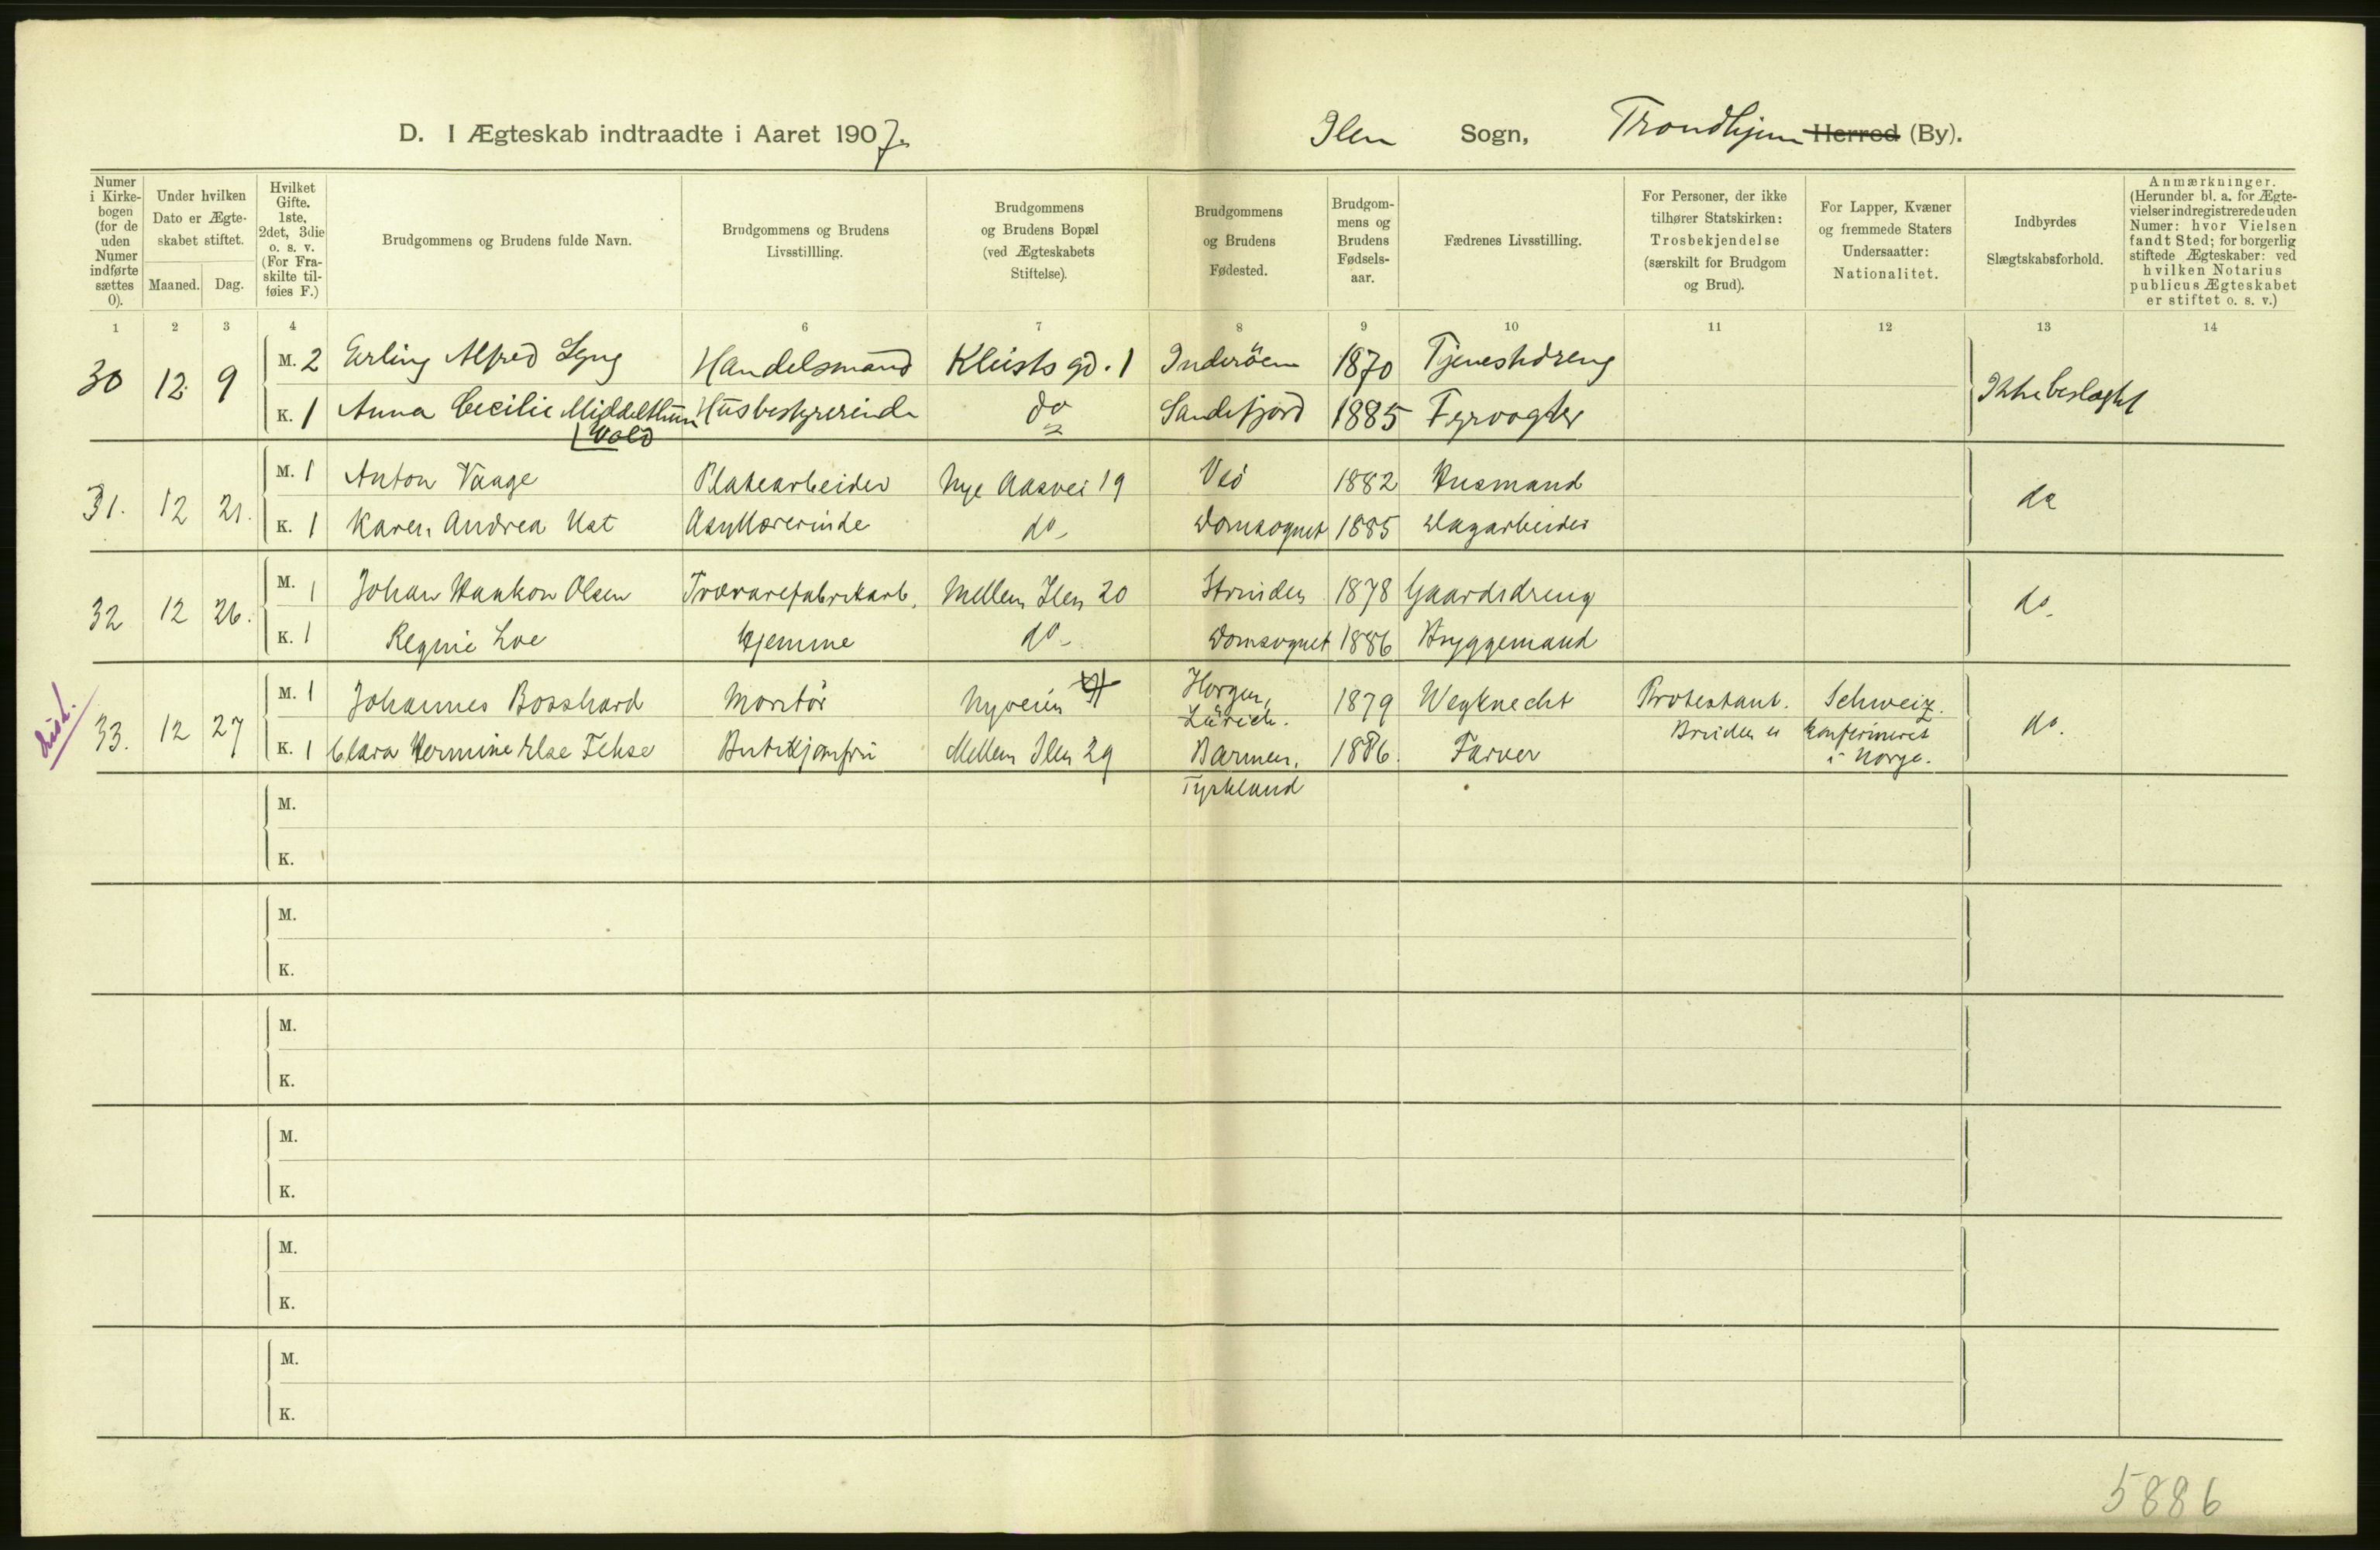 D. I Ægteskab indtraadte i Aaret 1907.
Ilen Sogn, Trondhjem Herred (By).
Numer i Kirkebogen (for de uden Numer indførte sættes 0).
Under hvilken Dato er Ægteskabet stiftet.
Maaned. Dag.
Hvilket Gifte. 1ste, 2det, 3die o. s. v. (For Fraskilte tilføies F.)
Brudgommens og Brudens fulde Navn.
Brudgommens og Brudens Livsstillling.
Brudgommens og Brudens Bopæl (ved Ægteskabets Stiftelse).
Brudgommens og Brudens Fødested.
Brudgommens og Brudens Fødselsaar.
Fædrenes Livsstilling.
For Personer, der ikke tilhører Statskirken: Trosbekjendelse (særskilt for Brudgom og Brud).
For Lapper, Kvæner og fremmede Staters Undersaatter: Nationalitet.
Indbyrdes Slægtskabsforhold.
Anmærkninger. (Herunder bl. a. for Ægtevielser indregistrerede uden Numer: hvor Vielsen fandt Sted; for borgerlig stiftede Ægteskaber: ved hvilken Notarius publicus Ægteskabet er stiftet o. s. v.)
1 2 3 4 6 7 8 9 10 11 12 13 14
30 12 9 M. 2 Erling Alfred Lyng Handelsmand Kleists gd. 1 Inderöen 1870 Tjenestdreng Ikke beslægtet
K. 1 Anna Cecilie Middelthun Husbestyrerinde do Sandefjord 1885 Fyrvogter
Vold
31. 12 21. M. 1 Anton Vaage Platearbeider Nye Aasvei 19 Veö 1882 Husmand do
K. 1 Karen Andrea Ust Asyllærerinde do Domsognet 1885 Dagarbeider
32 12 26. M. 1 Johan Haakon Olsen Trævarefabrikarb. Mellem Ilen 20 Strinden 1878 Gaardsdreng do.
K. 1 Regine Loe Hjemme do Domsognet 1886 Bryggemand
33. 12 27 M. 1 Johannes Bosshard Montör Nyveien Horgen, Zürich. 1879 Wegknecht Protestant. Schweiz. do.
Bruden er konfirmeret i Norge.
K. 1 Clara Hermine Else Fehse Butikjomfru Mellem Ilen 29 Barmen, Tyskland 1886. Farver
M.
K.
M.
K.
M.
K.
M.
K.
M.
K.
M.
K.
5886